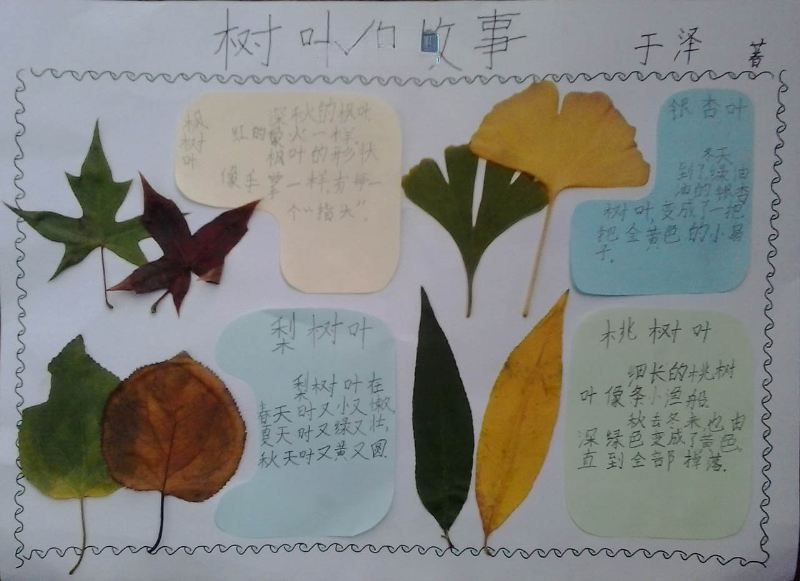 树叶的故事
于泽 著
枫树叶
深秋的枫叶
红的像火一样,
枫叶的形状
像手掌一样,有每一
个“指头”.
银杏叶
冬天
到了,绿油
油的银杏
树叶,变成了一把
把金黄色的小扇
子.
梨树叶
梨树叶在
春天时又小又嫩,
夏天时又绿又壮,
秋天叶又黄又圆.
桃树叶
细长的桃树
叶像条小渔船
秋去冬来也由
深绿色变成了黄色,
直到全部掉落.